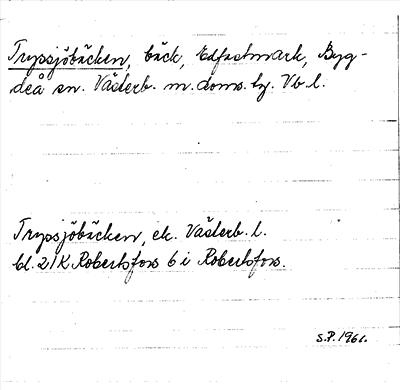 Trypsjöbäcken, bäck, Edfastmark, Byg-
deå sn. Västerb. m. doms. hg. Vb l.
Trypsjöbäcken, ek. Västerb. l.
bl. 21K Robertsfors 6 i Robertsfors.
S.P. 1961.